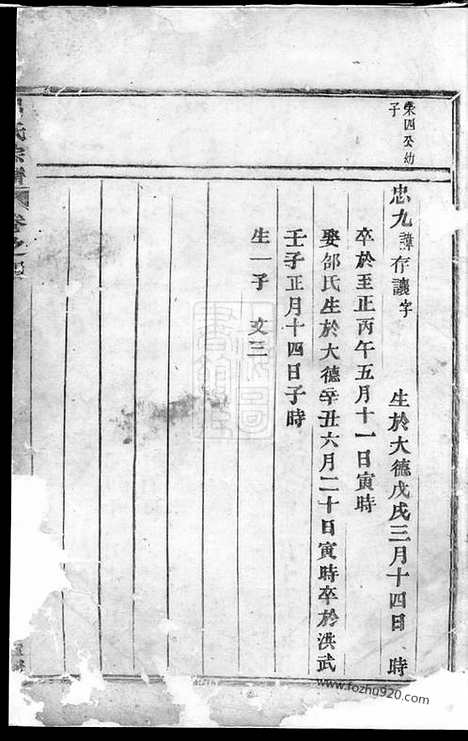 榮四公幼
子
忠九諱存讓字 生於大德戊戌三月十四日 時
卒於至正丙午五月十一日寅時
娶邵氏生於大德辛丑六月二十日寅時卒於洪武
壬子正月十四日子時
生一子 文三
氏宗譜 卷之
www.fozhu920.com